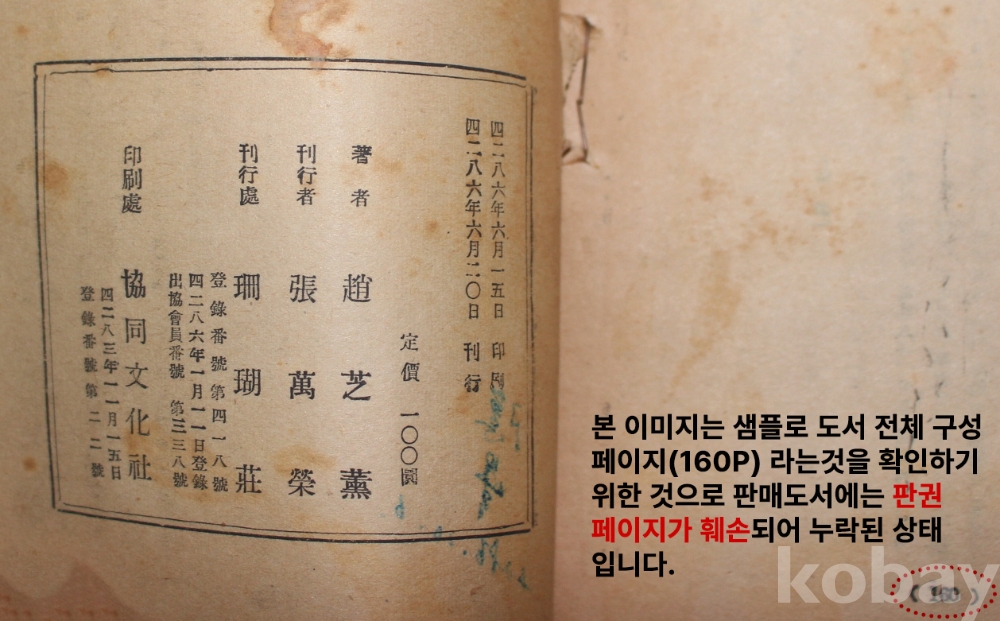 四二八六年六月一五日 印刷
四二八六年六月二〇日 刊行
定價 一〇〇圓
著者 趙芝薰
刊行者 張萬榮
刊行處 珊瑚莊
登錄番號第四一八號
四二八六年一月一一日登錄
出協會員番號 第三三八號
印刷處 協同文化社
四二八三年一一月一五日
登錄番號第二二號
본 이미지는 샘플로 도서 전체 구성
페이지(160P) 라는것을 확인하기
위한 것으로 판매도서에는 판권
페이지가 훼손되어 누락된 상태
입니다.
kobay
( 160 )